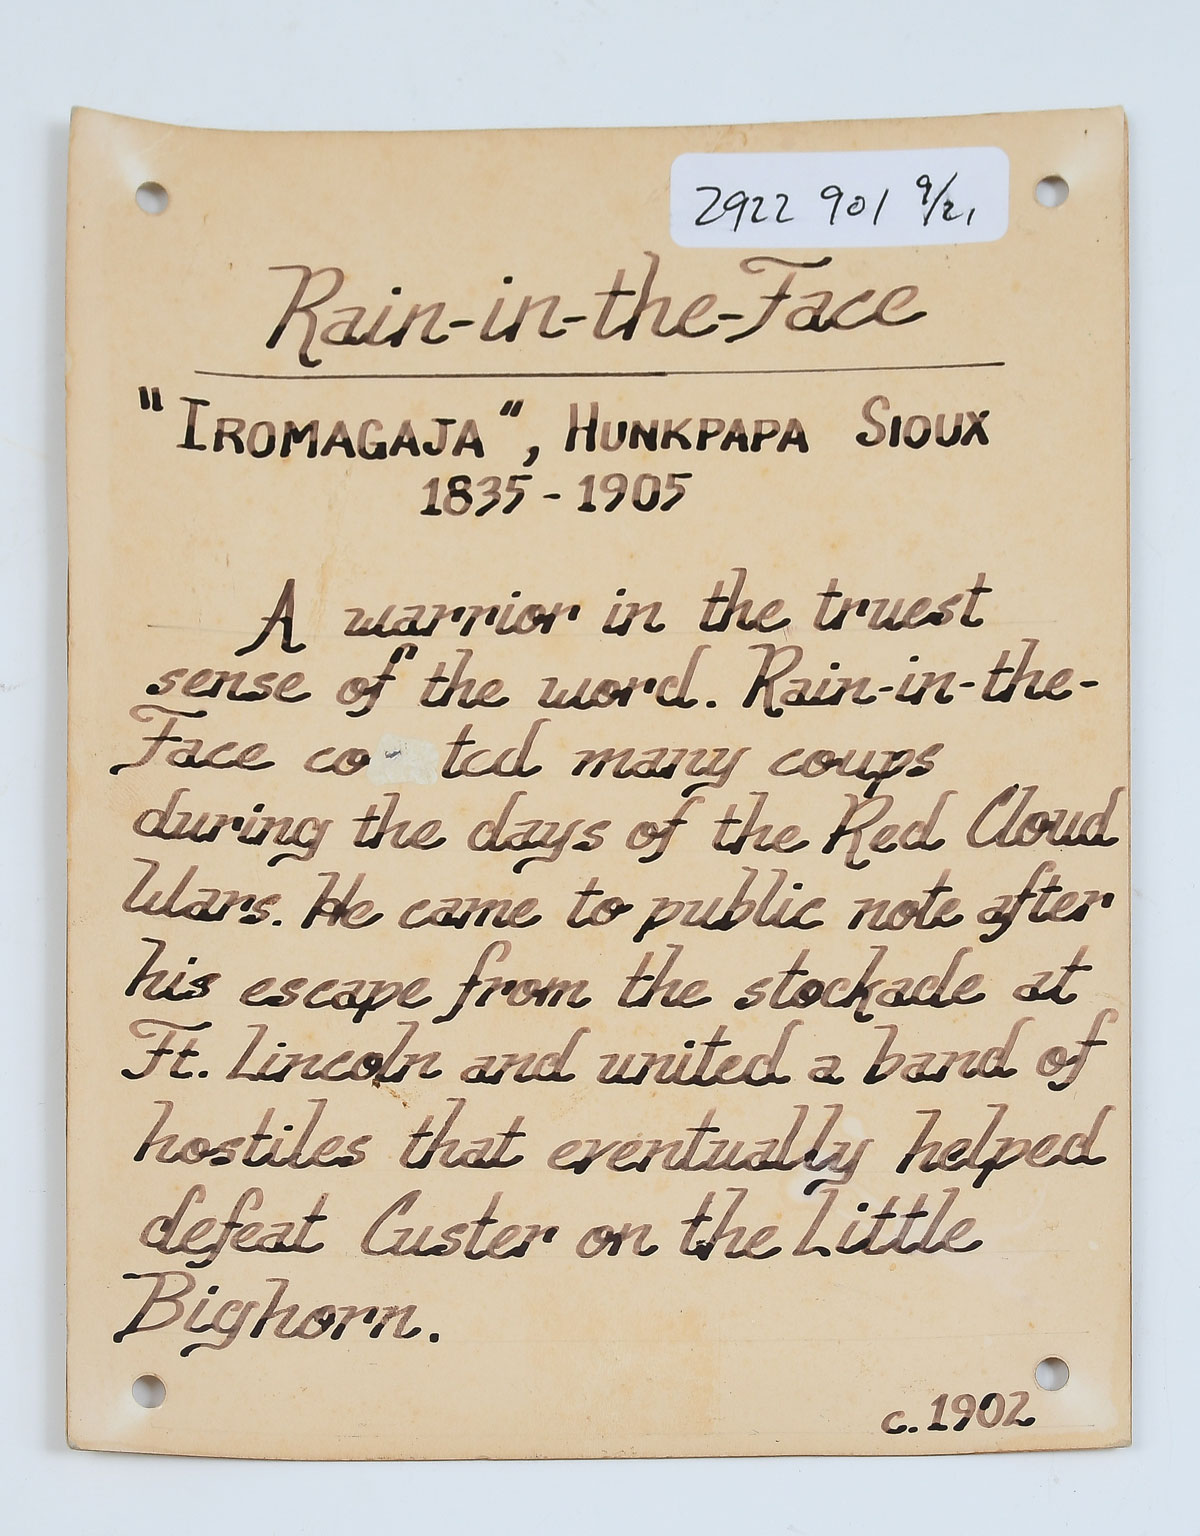 2922 901 9/21
Rain-in-the-Face
"IROMAGAJA", HUNKPAPA SIOUX
1835 - 1905
A warrior in the truest
sense of the word. Rain-in-the-
Face co ted many coups
during the days of the Red Cloud
Wars. He came to public note after
his escape from the stockade at
Ft. Lincoln and united a band of
hostiles that eventually helped
defeat Custer on the Little
Bighorn.
c. 1902